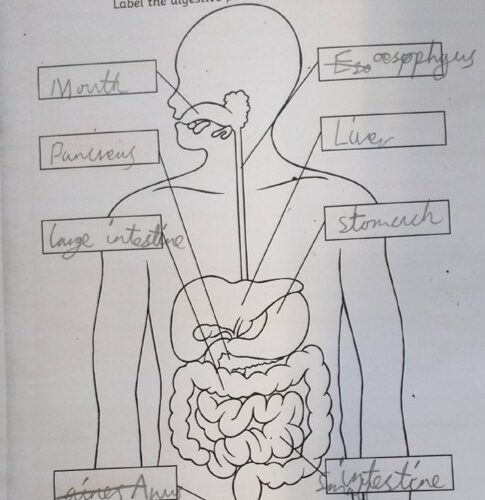 Label the digestive
Mouth
oesophagus
Pancreas
Liver
large intestine
stomach
Anus
intestine